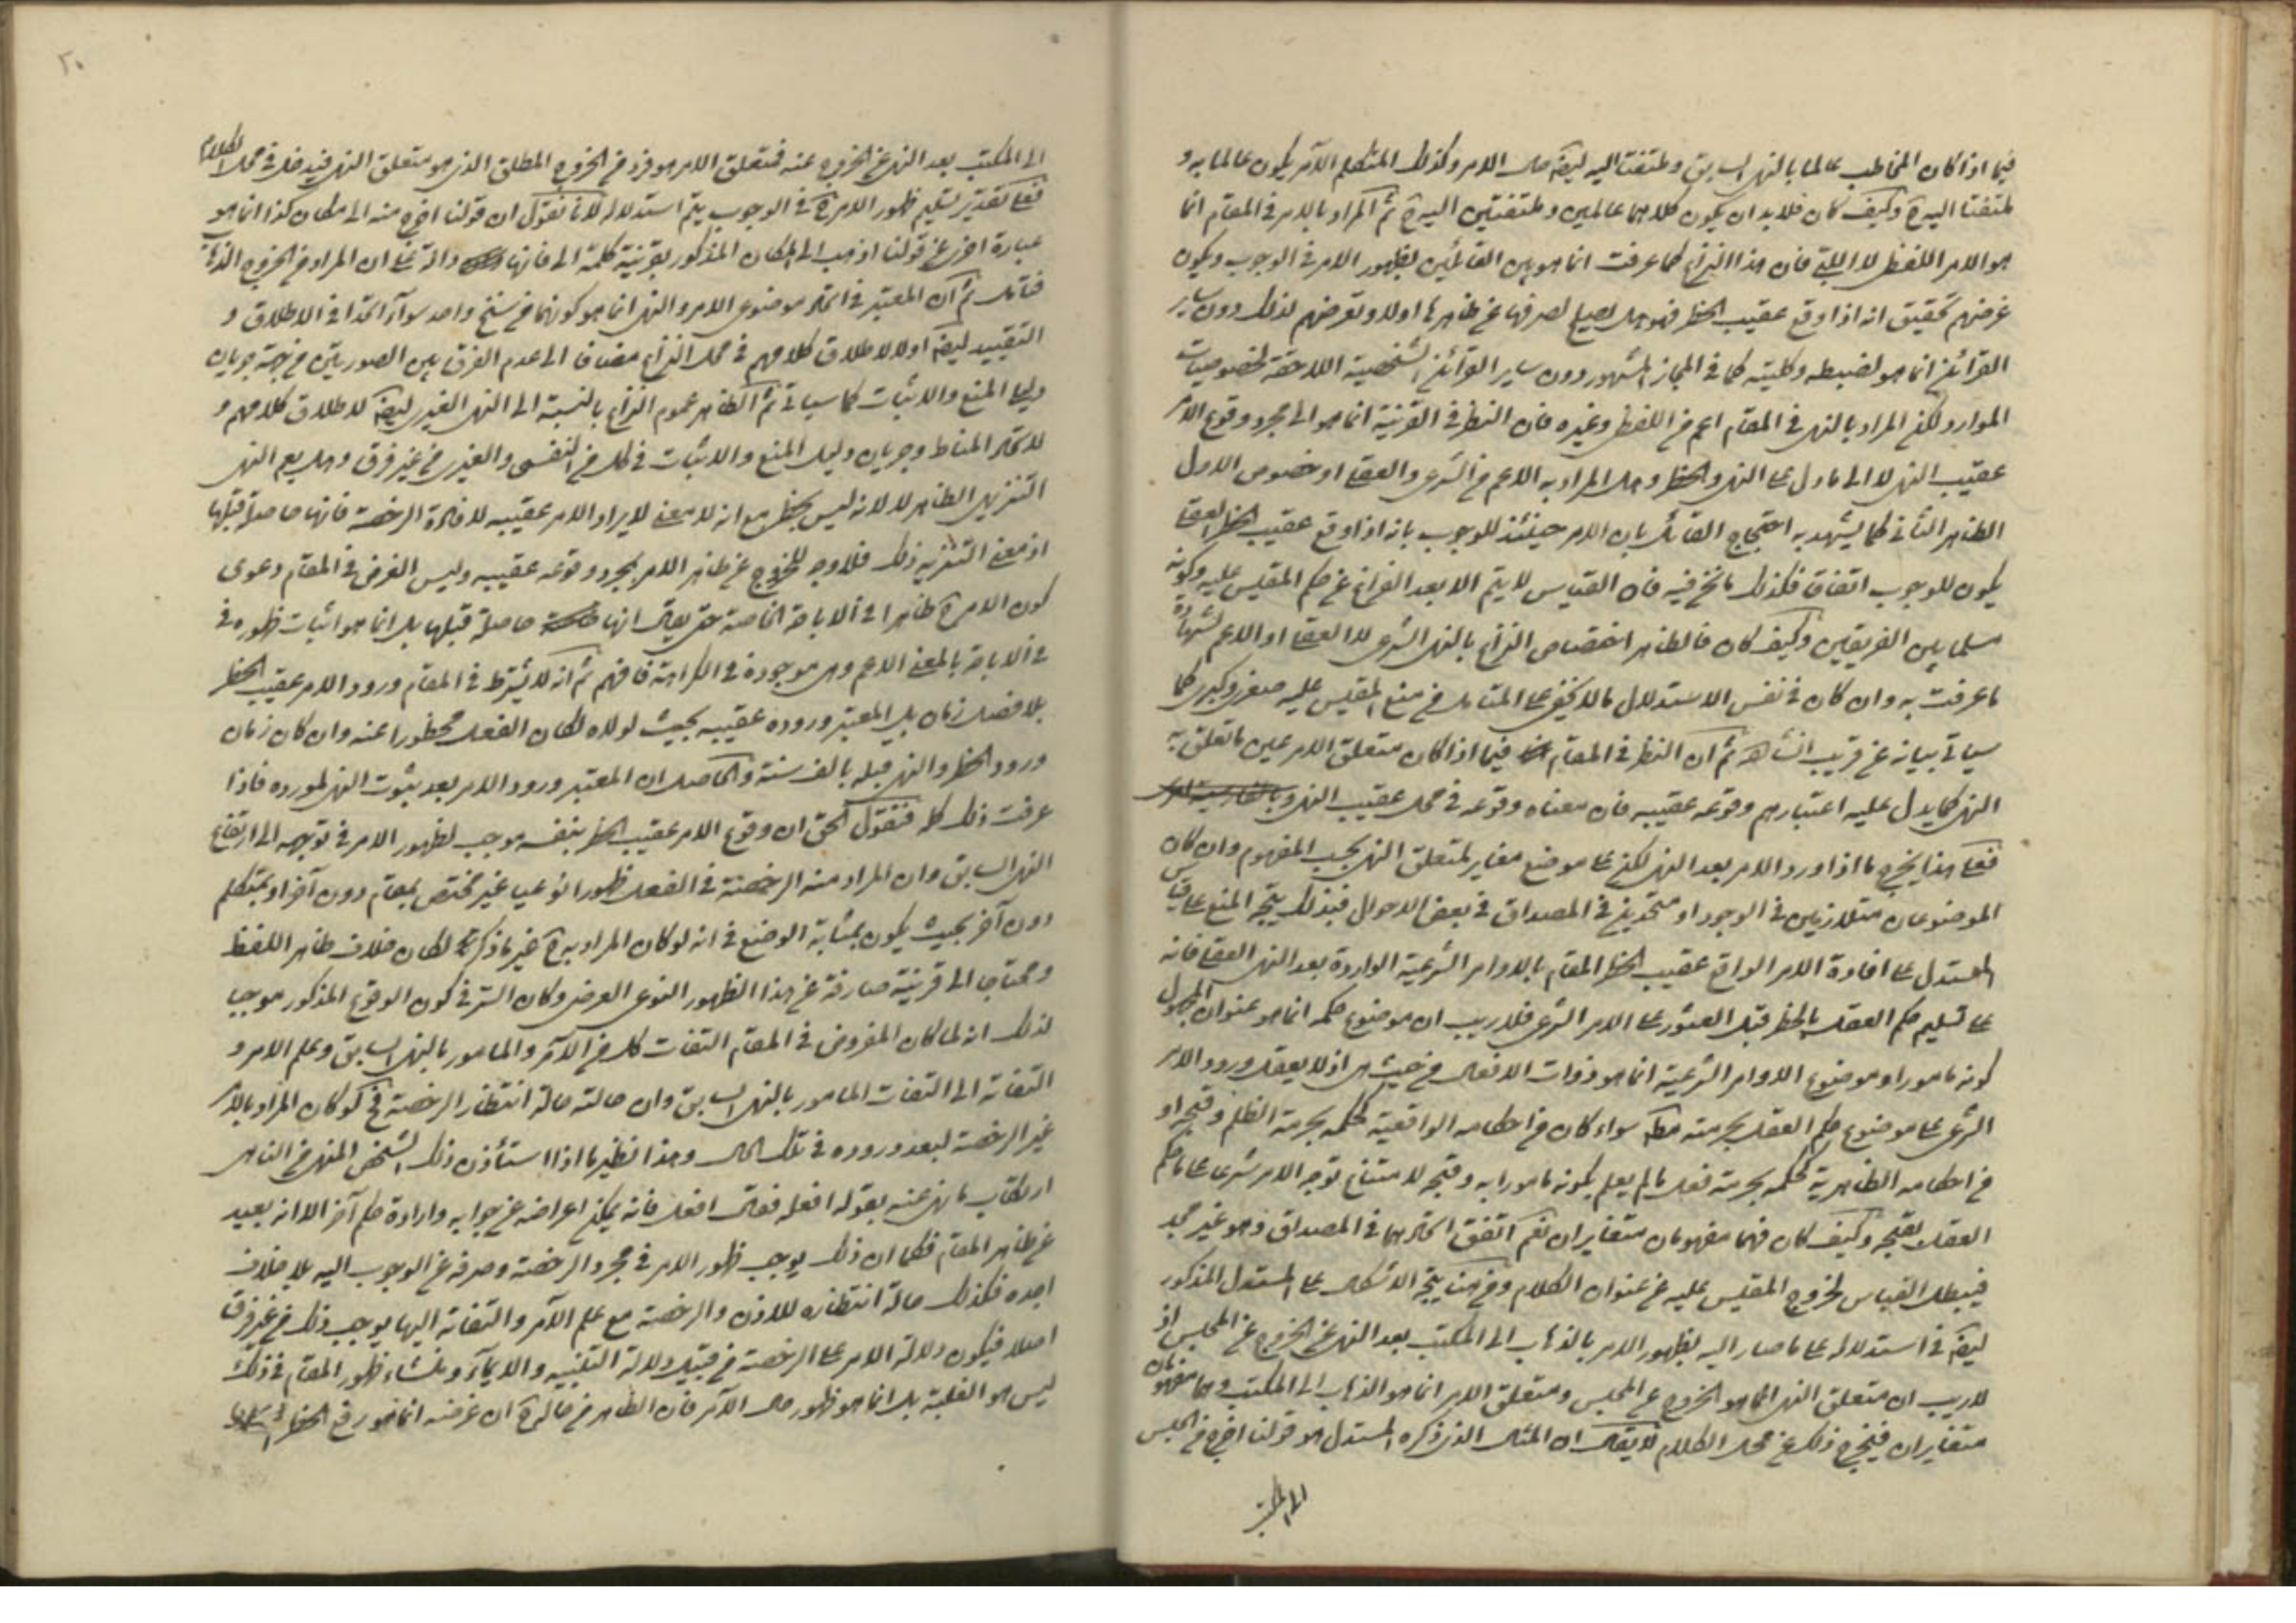 فيما اذا كان المخاطب عالما بالنهى السابق وملتفتا اليه ايضا حال الامر وكذلك المتكلم الآمر يكون عالما به و
ملتفتا اليه وكيف كان فلا بد ان يكون كلاهما عالمين وملتفتين اليه ثم المراد بالامر فى المقام انما
هو الامر اللفظى لا اللبى فان هذا النزاع كما عرفت انما هو بين القائلين بظهور الامر فى الوجوب ويكون
غرضهم تحقيق انه اذا وقع عقيب الحظر فهو هل يصلح لصرفها عن ظاهرها اولا وتعرضهم لذلك دون ساير
القرائن انما هو لضبطه وكليته كما فى المجاز المشهور دون ساير القرائن الشخصية اللاحقة لخصوصيات
الموارد لكن المراد بالنهى فى المقام اعم من اللفظى وغيره فان النظر فى القرينة انما هو الى مجرد وقوع الامر
عقيب النهى لا الى ما دل على النهى والحظر وهل المراد به الاعم من الشرعى والعقلى او خصوص الاول
الظاهر الثانى كما يشهد به احتجاج القائل بان الامر حينئذ للوجوب بانه اذا وقع عقيب الحظر العقلى
يكون للوجوب اتفاقا فكذلك ما نحن فيه فان القياس لا يتم الا بعد الفراغ عن حكم المقيس عليه وكونه
مسلما بين الفريقين وكيف كان فالظاهر اختصاص النزاع بالنهى الشرعى لا العقلى او الاعم لشهادة
ما عرفت به وان كان فى نفس الاستدلال ما لا يخفى على المتامل من منع المقيس عليه صغرى وكبرى كما
سياتى بيانه عن قريب انشاء الله ثم ان النظر فى المقام فيما اذا كان متعلق الامر عين ما تعلق به
النهى كما يدل عليه اعتبارهم وقوعه عقيبه فان معناه وقوعه فى محل عقيب النهى
فعلى هذا يخرج ما اذا ورد الامر بعد النهى لكن على موضع مغاير لمتعلق النهى بحسب المفهوم وان كان
الموضوعان متلازمين فى الوجود او متحدين فى المصداق فى بعض الاحوال فبذلك يتجه المنع على قياس
المستدل على افادة الامر الواقع عقيب الحظر المقام بالاوامر الشرعية الواردة بعد النهى العقلى فانه
على تسليم حكم العقل بالحظر قبل العثور على الامر الشرعى فلا ريب ان موضوع حكمه انما هو عنوان المجهول
كونه مامورا وموضوع الاوامر الشرعية انما هو ذوات الافعال من حيث هى اذ لا يعقل ورود الامر
الشرعى على موضوع حكم العقل بحرمته مط سواء كان من احكامه الواقعية كحكمه بحرمة الظلم وقبحه او
من احكامه الظاهرية كحكمه بحرمة فعل ما لم يعلم بكونه مامورا به وقبحه لامتناع توجه الامر شرعا على ما حكم
العقل بقبحه وكيف كان فهما مفهومان متغايران نعم اتفق اتحادهما فى المصداق وهو غير مجد
فيبطل القياس لخروج المقيس عليه عن عنوان الكلام ومن هنا يتجه الاشكال على المستدل المذكور
ايضا فى استدلاله على ما صار اليه بظهور الامر بالذهاب الى المكتب بعد النهى عن الخروج عن المجلس اذ
لا ريب ان متعلق النهى انما هو الخروج عن المجلس ومتعلق الامر انما هو الذهاب الى المكتب وهما مفهومان
متغايران فيخرج ذلك عن محل الكلام لا يقال ان المثال الذى ذكره المستدل هو قولنا اخرج من المجلس
الى المكتب
٢٠
الى المكتب بعد النهى عن الخروج عنه فمتعلق الامر هو فرد من الخروج المطلق الذى هو متعلق النهى فيدخل فى محل الكلام
فعلى تقدير تسليم ظهور الامر فى الوجوب يتم استدلاله لانا نقول ان قولنا اخرج منه الى مكان كذا انما هو
عبارة اخرى عن قولنا اذهب الى المكان المذكور بقرينة كلمة الى فانها دالة على ان المراد من الخروج الذهاب
فتامل ثم ان المعتبر فى اتحاد موضوعى الامر والنهى انما هو كونهما من سنخ واحد سواء اتحدا فى الاطلاق و
التقييد ايضا اولا لاطلاق كلامهم فى محل النزاع مضافا الى عدم الفرق بين الصورتين من جهة جريان
دليل المنع والاثبات كما سياتى ثم الظاهر عموم النزاع بالنسبة الى النهى الغيرى ايضا لاطلاق كلامهم و
لاتحاد المناط وجريان دليل المنع والاثبات فى كل من النفسى والغيرى من غير فرق وهل يعم النهى
التنزيهى الظاهر لا لانه ليس بحظر مع انه لا معنى لايراد الامر عقيبه لافادة الرخصة فانها حاصلة قبلها
اذ معنى التنزيه ذلك فلا وجه للخروج عن ظاهر الامر بمجرد وقوعه عقيبه وليس الغرض فى المقام دعوى
كون الامر ظاهرا فى الاباحة الخاصة حتى يقال انها حاصلة قبلها بل انما هو اثبات ظهوره فى
فى الاباحة بالمعنى الاعم وهى موجودة فى الكراهة فافهم ثم انه لا يشترط فى المقام ورود الامر عقيب الحظر
بلا فصل زمان بل المعتبر وروده عقيبه بحيث لولاه لكان الفعل محظورا عنه وان كان زمان
ورود الحظر والنهى قبله بالف سنة والحاصل ان المعتبر ورود الامر بعد ثبوت النهى لمورده فاذا
عرفت ذلك كله فنقول الحق ان وقوع الامر عقيب الحظر بنفسه موجب لظهور الامر فى توجهه الى ارتفاع
النهى السابق وان المراد منه الرخصة فى الفعل ظهورا نوعيا غير مختص بمقام دون آخر او بمتكلم
دون آخر بحيث يكون بمثابة الوضع فى انه لو كان المراد به غير ما ذكر لكان خلاف ظاهر اللفظ
ومحتاجا الى قرينة صارفة عن هذا الظهور النوعى العرفى وكان السر فى كون الوقوع المذكور موجبا
لذلك انه لما كان المفروض فى المقام التفات كل من الآمر والمامور بالنهى السابق وعلم الامر و
التفاته الى التفات المامور بالنهى السابق وان حالته حالة انتظار الرخصة فح لو كان المراد بالامر
غير الرخصة لبعد وروده فى تلك الحال وهذا نظير ما اذا استأذن ذلك الشخص المنهى من الناهى
ارتكاب ما نهى عنه بقوله افعله فقال افعل فانه يمكن اعراضه عن جوابه وارادة حكم آخر الا انه بعيد
عن ظاهر المقام فكما ان ذلك يوجب ظهور الامر فى مجرد الرخصة وصرفه عن الوجوب اليه بلا خلاف
اجده فكذلك حالة انتظاره للاذن والرخصة مع علم الآمر والتفاته اليها يوجب ذلك من غير فرق
اصلا فيكون دلالة الامر على الرخصة من قبيل دلالة التنبيه والايماء ومنشاء ظهور المقام فى ذلك
ليس هو الغلبة بل انما هو ظهور حال الآمر فان الظاهر من حاله ان غرضه انما هو رفع الحظر